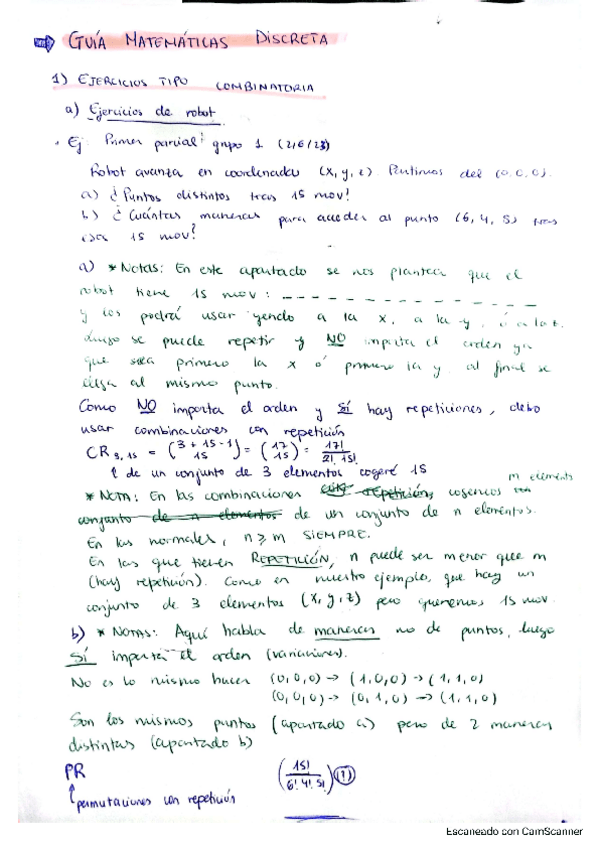 GUÍA MATEMÁTICAS DISCRETA
1) EJERCICIOS TIPO COMBINATORIA
a) Ejercicios de robot
• Ej Primer parcial: grupo 1 (2/6/23)
Robot avanza en coordenadas (x, y, z). Partimos del (0,0,0).
a) ¿Puntos distintos tras 15 mov?
b) ¿Cuántas maneras para acceder al punto (6, 4, 5) tras
esa 15 mov?
a) * Notas: En este apartado se nos plantea que el
robot tiene 15 mov: _ _ _ _ _ _ _ _ _ _ _ _ _ _ _
y los podrá usar yendo a la x, a la y, ó a la z.
Luego se puede repetir y NO importa el orden ya
que sea primero la x ó primero la y al final se
llega al mismo punto.
Como NO importa el orden y SÍ hay repeticiones, debo
usar combinaciones con repetición
CR 3, 15 = (3 + 15 - 1 / 15) = (17 / 15) = 17! / 2! 15!
de un conjunto de 3 elementos cogeré 15
* NOTA: En las combinaciones cogemos m elements
de un conjunto de n elementos.
En las normales, n ≥ m SIEMPRE.
En las que tienen REPETICIÓN, n puede ser menor que m
(hay repetición). Como en nuestro ejemplo, que hay un
conjunto de 3 elementos (x, y, z) pero queremos 15 mov.
b) * NOTAS: Aquí habla de maneras no de puntos, luego
SÍ importa el orden (variaciones).
No es lo mismo hacer (0,0,0) → (1,0,0) → (1,1,0)
(0,0,0) → (0,1,0) → (1,1,0)
Son los mismos puntos (apartado a) pero de 2 maneras
distintas (apartado b)
PR (15! / 6! 4! 5!)
permutaciones con repetición
Escaneado con CamScanner